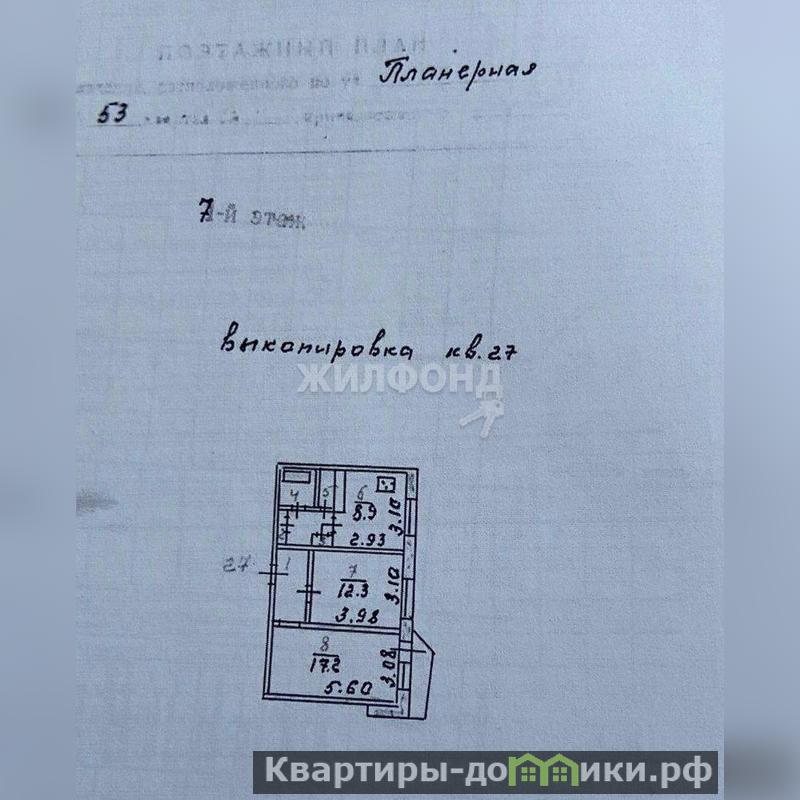 ПОЭТАЖНЫЙ ПЛАН
расположенного по ул Планерная
53
7-й этаж
выкопировка кв. 27
ЖИЛФОНД
4 5 6
8.9
3.10
2.93
27 1 7
12.3
3.10
3.98
8
17.2
3.08
5.60
Квартиры-домики.рф